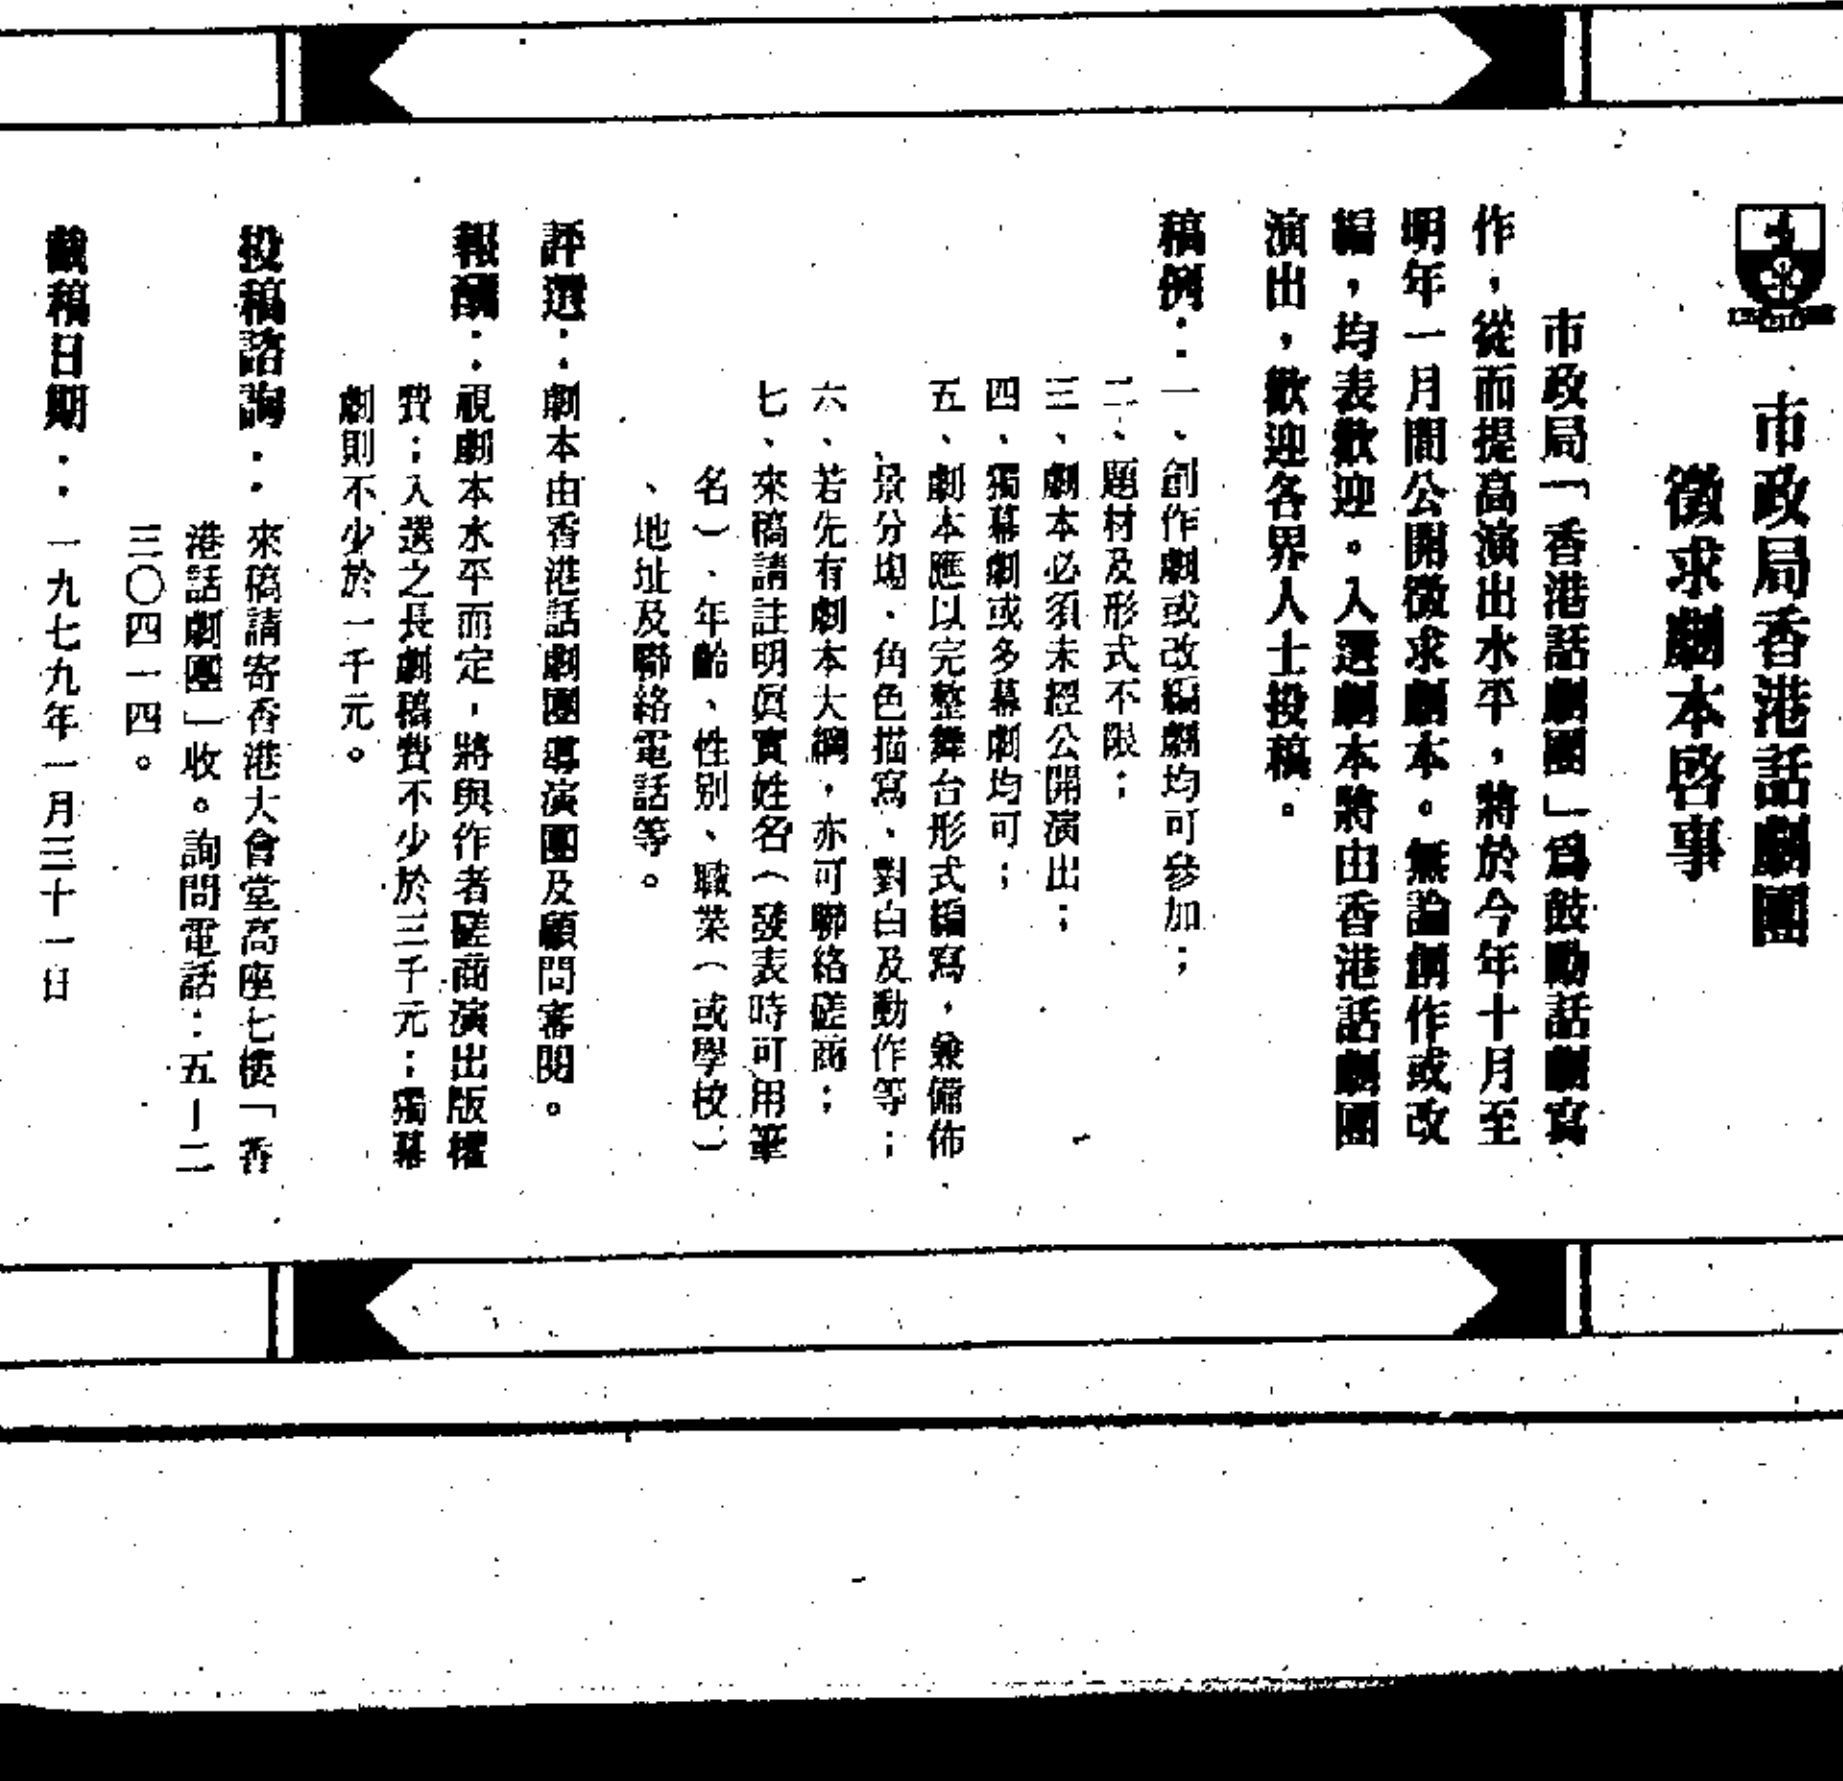 市政局香港話劇團
徵求劇本啓事
市政局「香港話劇團」爲鼓勵話劇寫
作，從而提高演出水平，將於今年十月至
明年一月間公開徵求劇本。無論創作或改
編，均表歡迎。入選劇本將由香港話劇團
演出，歡迎各界人士投稿。
稿例：一、創作劇或改編劇均可參加；
二、題材及形式不限；
三、劇本必須未經公開演出；
四、獨幕劇或多幕劇均可；
五、劇本應以完整舞台形式編寫，兼備佈
景分場、角色描寫、對白及動作等；
六、若先有劇本大綱，亦可聯絡磋商；
七、來稿請註明眞實姓名（發表時可用筆
名）、年齡、性別、職業（或學校）
、地址及聯絡電話等。
評選：劇本由香港話劇團導演團及顧問審閱。
報酬：視劇本水平而定，將與作者磋商演出版權
費；入選之長劇稿費不少於三千元；獨幕
劇則不少於一千元。
投稿諮詢：來稿請寄香港大會堂高座七樓「香
港話劇團」收。詢問電話：五－二
三〇四一四。
截稿日期：一九七九年一月三十一日